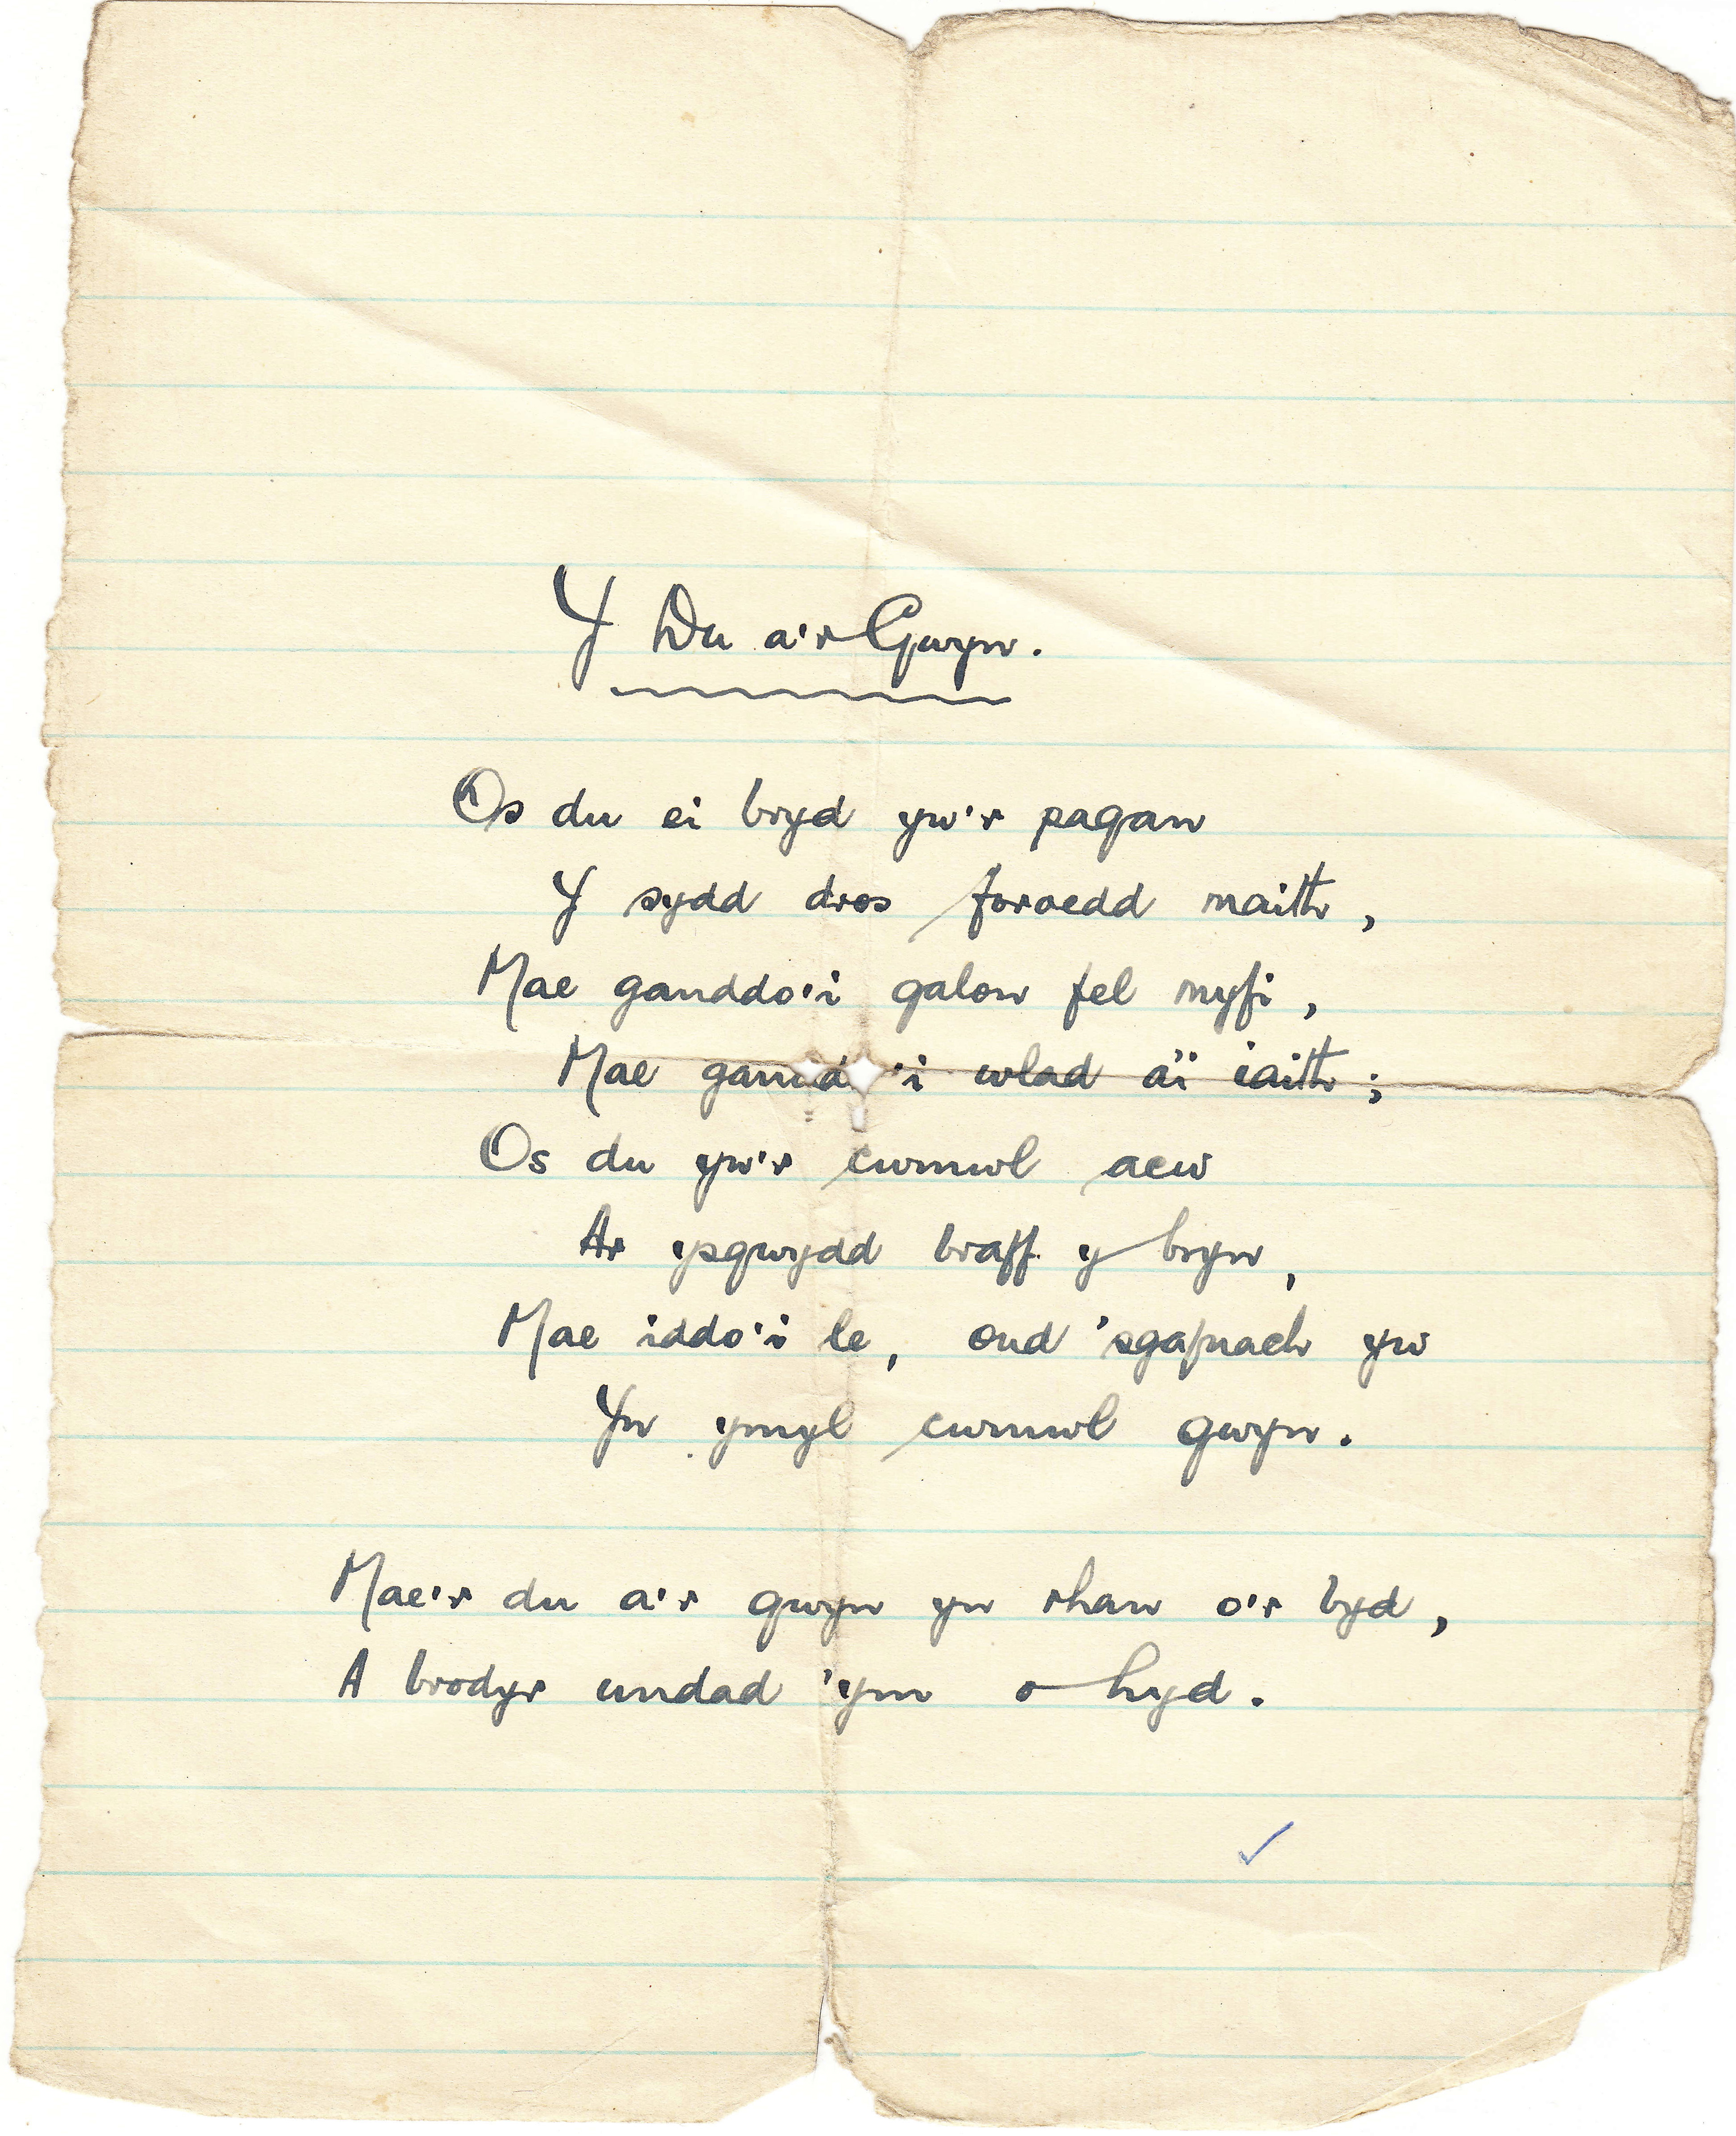 Y Du a'r Gwyn.
Os du ei bryd yw'r pagan
Y sydd dros foroedd maith,
Mae ganddo'i galon fel myfi,
Mae gandd 'i wlad a'i iaith;
Os du yw'r cwmwl acw
Ar ysgwydd braff y bryn,
Mae iddo'i le, ond 'sgafnach yw
Yn ymyl cwmwl gwyn.
Mae'r du a'r gwyn yn rhan o'r byd,
A brodyr undad 'ym o hyd.